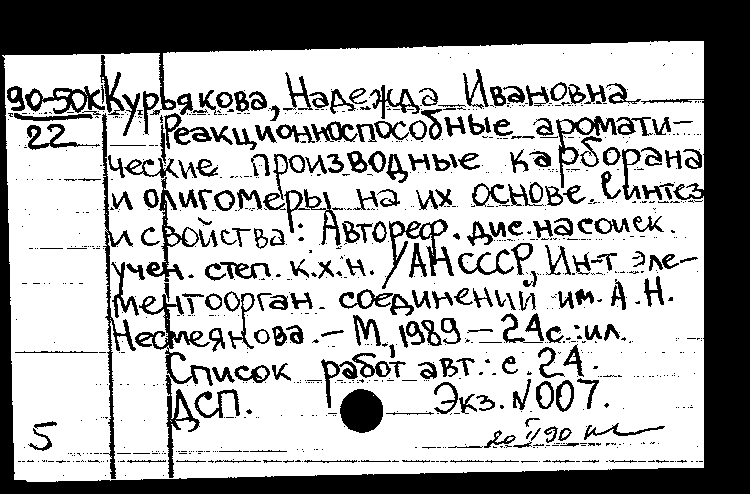 90-50К Курьякова, Надежда Ивановна
22 Реакционноспособные аромати-
ческие производные карборана
и олигомеры на их основе. Синтез
и свойства: Автореф. дис. на соиск.
учен. степ. к.х.н. /АН СССР, Ин-т эле-
ментоорган. соединений им. А.Н.
Несмеянова. – М., 1989. – 24с.: ил.
Список работ авт.: с. 24.
ДСП. Экз. №007.
5 20 I 90